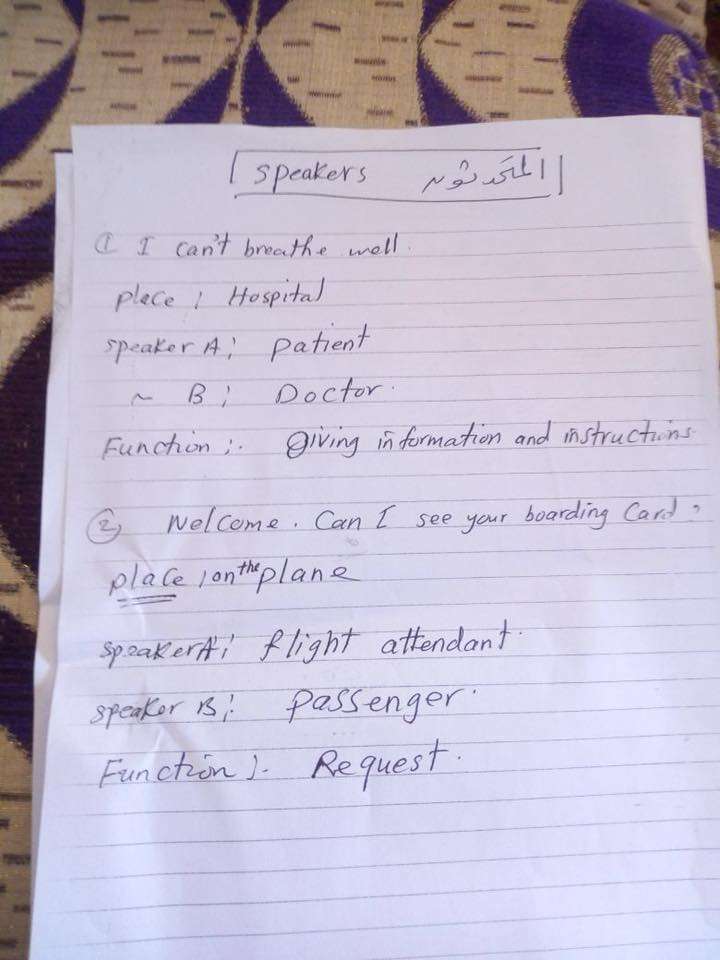 speakers المتحدثون
① I can't breathe well.
place : Hospital
speaker A : patient
~ B : Doctor.
Function :. Giving information and instructions.
② Welcome. Can I see your boarding Card?
place : on the plane
speaker A : flight attendant.
speaker B : passenger.
Function :. Request.